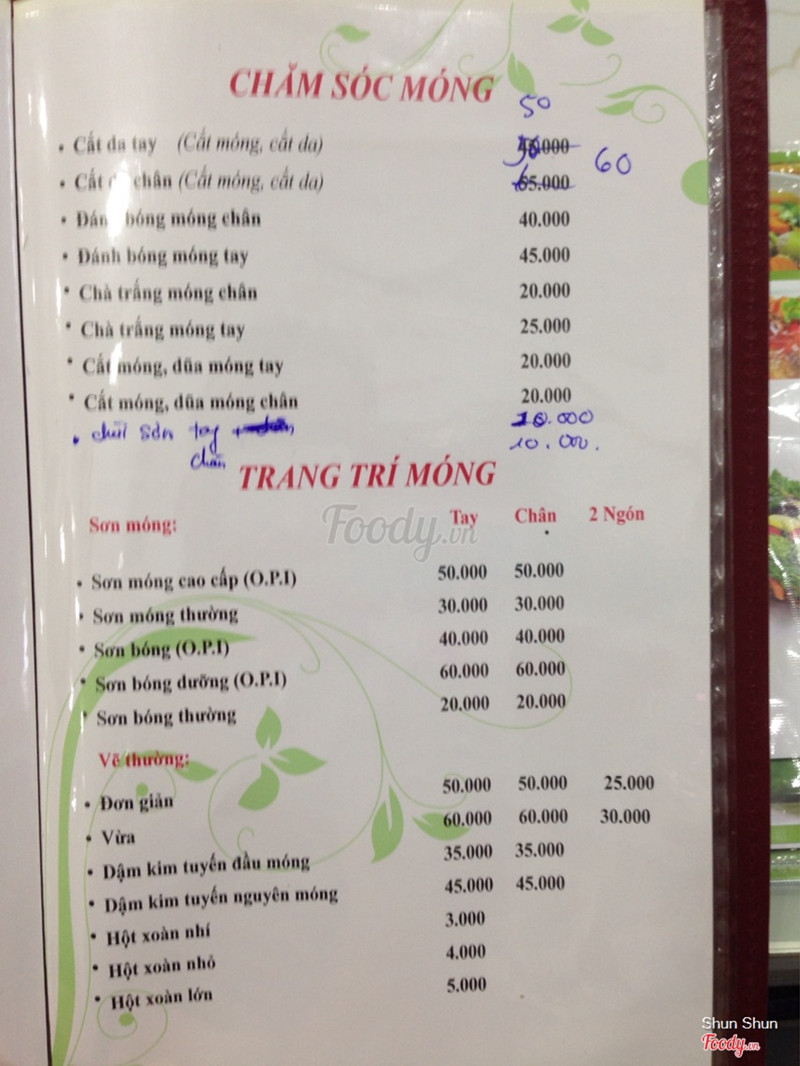 CHĂM SÓC MÓNG
50
• Cắt da tay (Cắt móng, cắt da) 000
60
• Cắt chân (Cắt móng, cắt da) 65.000
• Đánh bóng móng chân 40.000
• Đánh bóng móng tay 45.000
• Chà trắng móng chân 20.000
• Chà trắng móng tay 25.000
• Cắt móng, dũa móng tay 20.000
• Cắt móng, dũa móng chân 20.000
• chùi sơn tay 10.000
chân 10.000.
TRANG TRÍ MÓNG
Sơn móng: Tay Chân 2 Ngón
• Sơn móng cao cấp (O.P.I) 50.000 50.000
• Sơn móng thường 30.000 30.000
• Sơn bóng (O.P.I) 40.000 40.000
• Sơn bóng dưỡng (O.P.I) 60.000 60.000
• Sơn bóng thường 20.000 20.000
Vẽ thường:
• Đơn giản 50.000 50.000 25.000
• Vừa 60.000 60.000 30.000
• Dậm kim tuyến đầu móng 35.000 35.000
• Dậm kim tuyến nguyên móng 45.000 45.000
• Hột xoàn nhí 3.000
• Hột xoàn nhỏ 4.000
• Hột xoàn lớn 5.000
Foody.vn
Shun Shun
Foody.vn